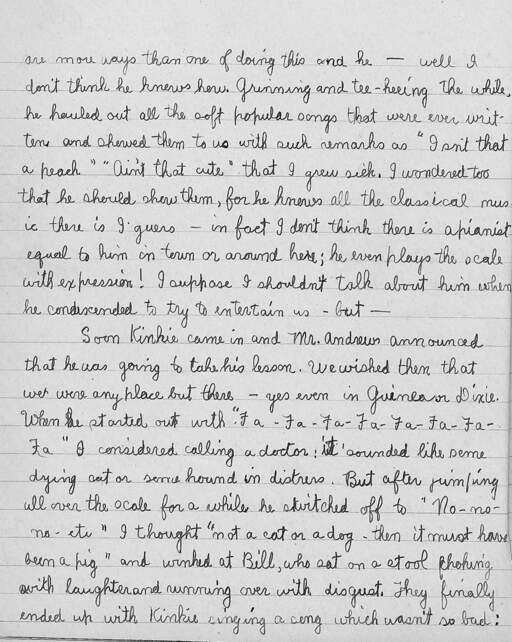 are more ways than one of doing this and he — well I
don't think he knows how. Grinning and tee-heeing the while,
he hauled out all the soft popular songs that were ever writ-
ten and showed them to us with such remarks as "Isn't that
a peach" "Ain't that cute" that I grew sick. I wondered too
that he should show them, for he knows all the classical mus-
ic there is I guess — in fact I don't think there is a pianist
equal to him in town or around here; he even plays the scale
with expression! I suppose I shouldn't talk about him when
he condescended to try to entertain us - but —
Soon Kinkie came in and Mr. Andrews announced
that he was going to take his lesson. We wished then that
we were any place but there — yes even in Guinea or Dixie.
When he started out with "Fa - Fa - Fa - Fa - Fa - Fa - Fa -
Fa" I considered calling a doctor; it sounded like some
dying cat or some hound in distress. But after jumping
all over the scale for a while he switched off to "No-no-
no- etc" I thought "not a cat or a dog - then it must have
been a pig" and winked at Bill, who sat on a stool choking
with laughter and running over with disgust. They finally
ended up with Kinkie singing a song which wasn't so bad: